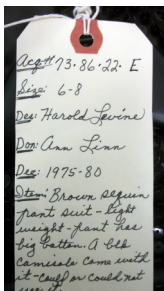 Acq# 73.86.22. E
Size: 6-8
Des: Harold Levine
Don: Ann Linn
Dec: 1975-80
Item: Brown sequin
pant suit - light
weight - pant has
big bottom. A blk
camisole came with
it - could not
use it.